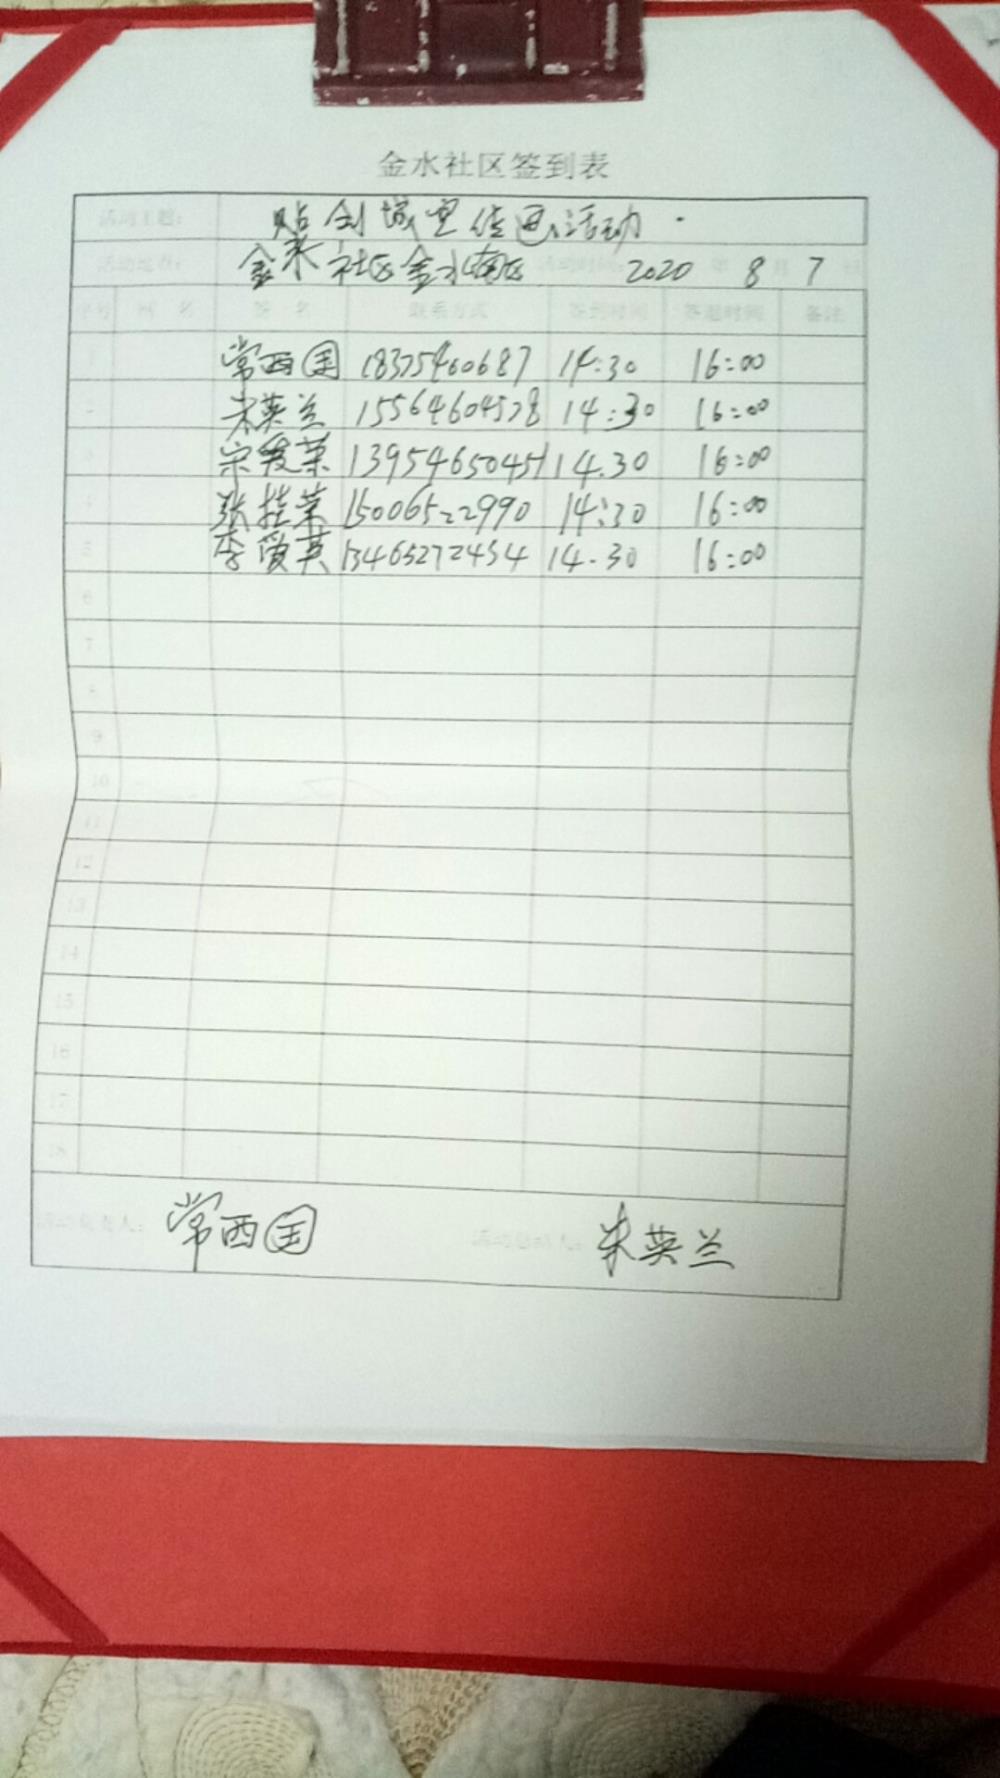 金水社区签到表
活动主题： 贴创城宣传画活动
活动地点： 金水社区金水南区 活动时间： 2020 年 8 月 7 日
序号 网 名 签 名 联系方式 签到时间 签退时间 备注
1 常西国 18375460687 14:30 16:00
2 朱英兰 15564604578 14:30 16:00
3 宋爱荣 13954650451 14.30 16:00
4 张桂荣 15006522990 14:30 16:00
5 李爱英 13465272454 14.30 16:00
6
7
8
9
10
11
12
13
14
15
16
17
18
活动负责人： 常西国 朱英兰